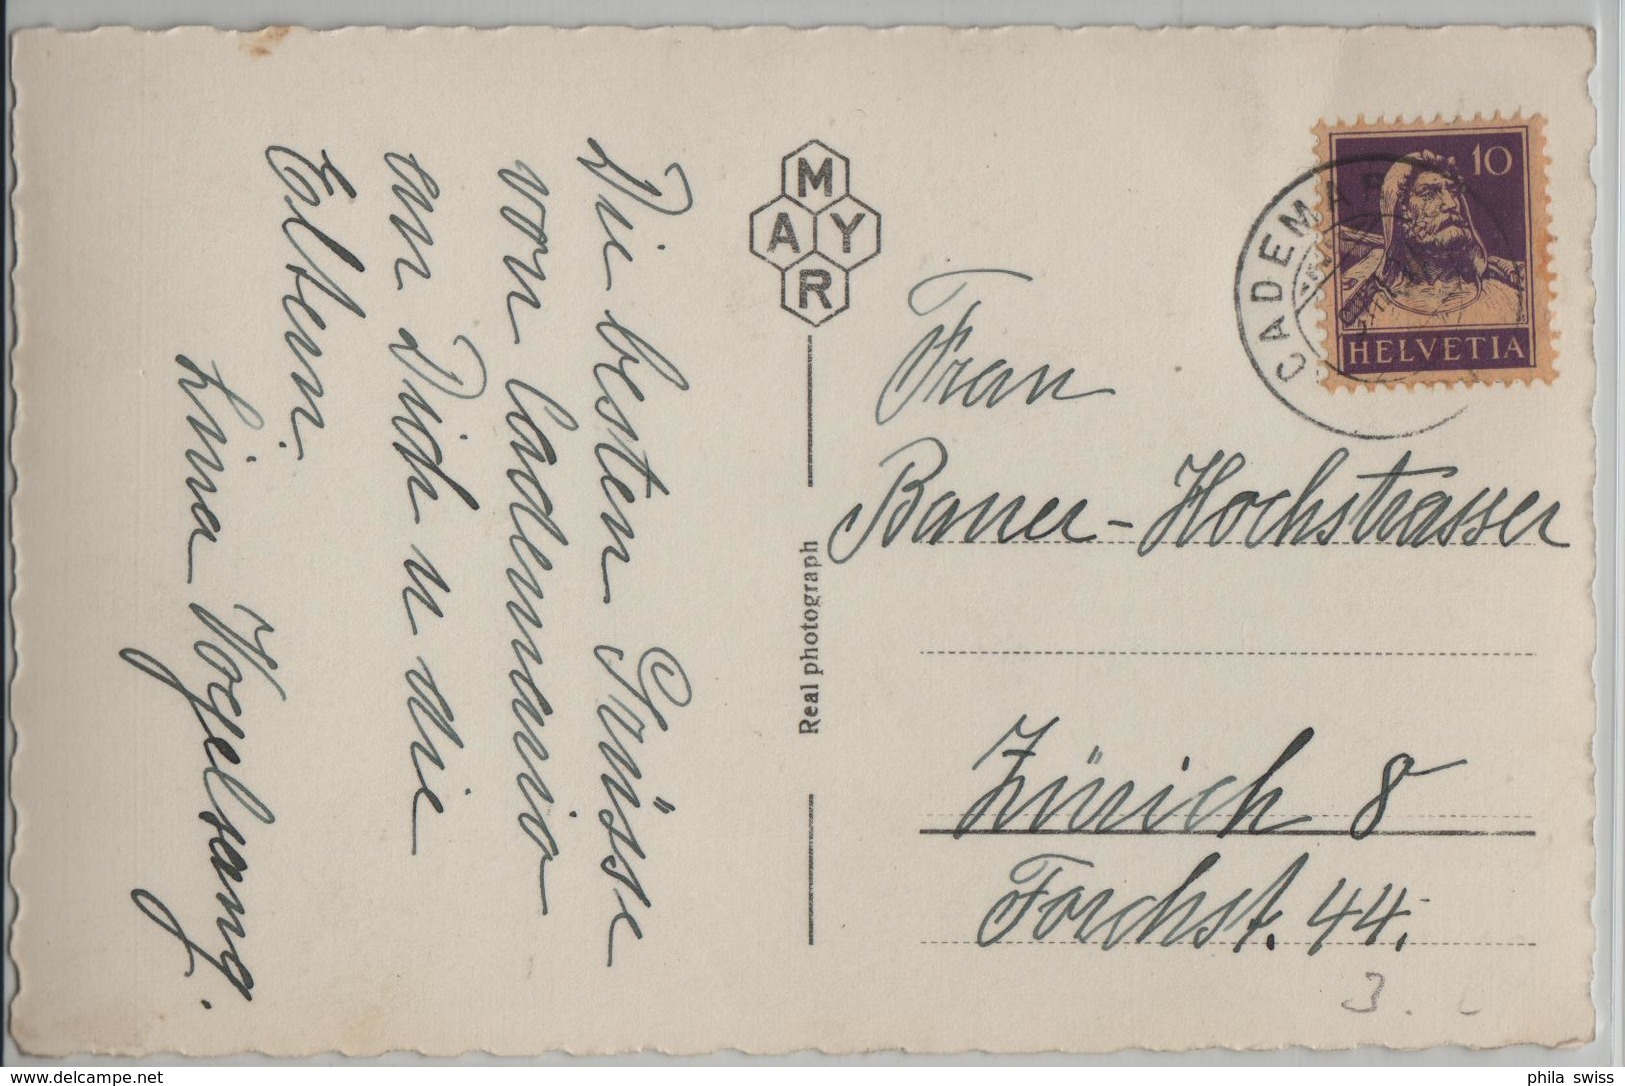 Die besten Grüsse
von Cademario
an Dich u die
Eltern.
Lina Vogelsang.
M
A Y
R
Real photograph
10
HELVETIA
CADEMAR
Frau
Bauer-Hochstrasser
Zürich 8
Forchst. 44.
3.
delcampe.net
phila_swiss